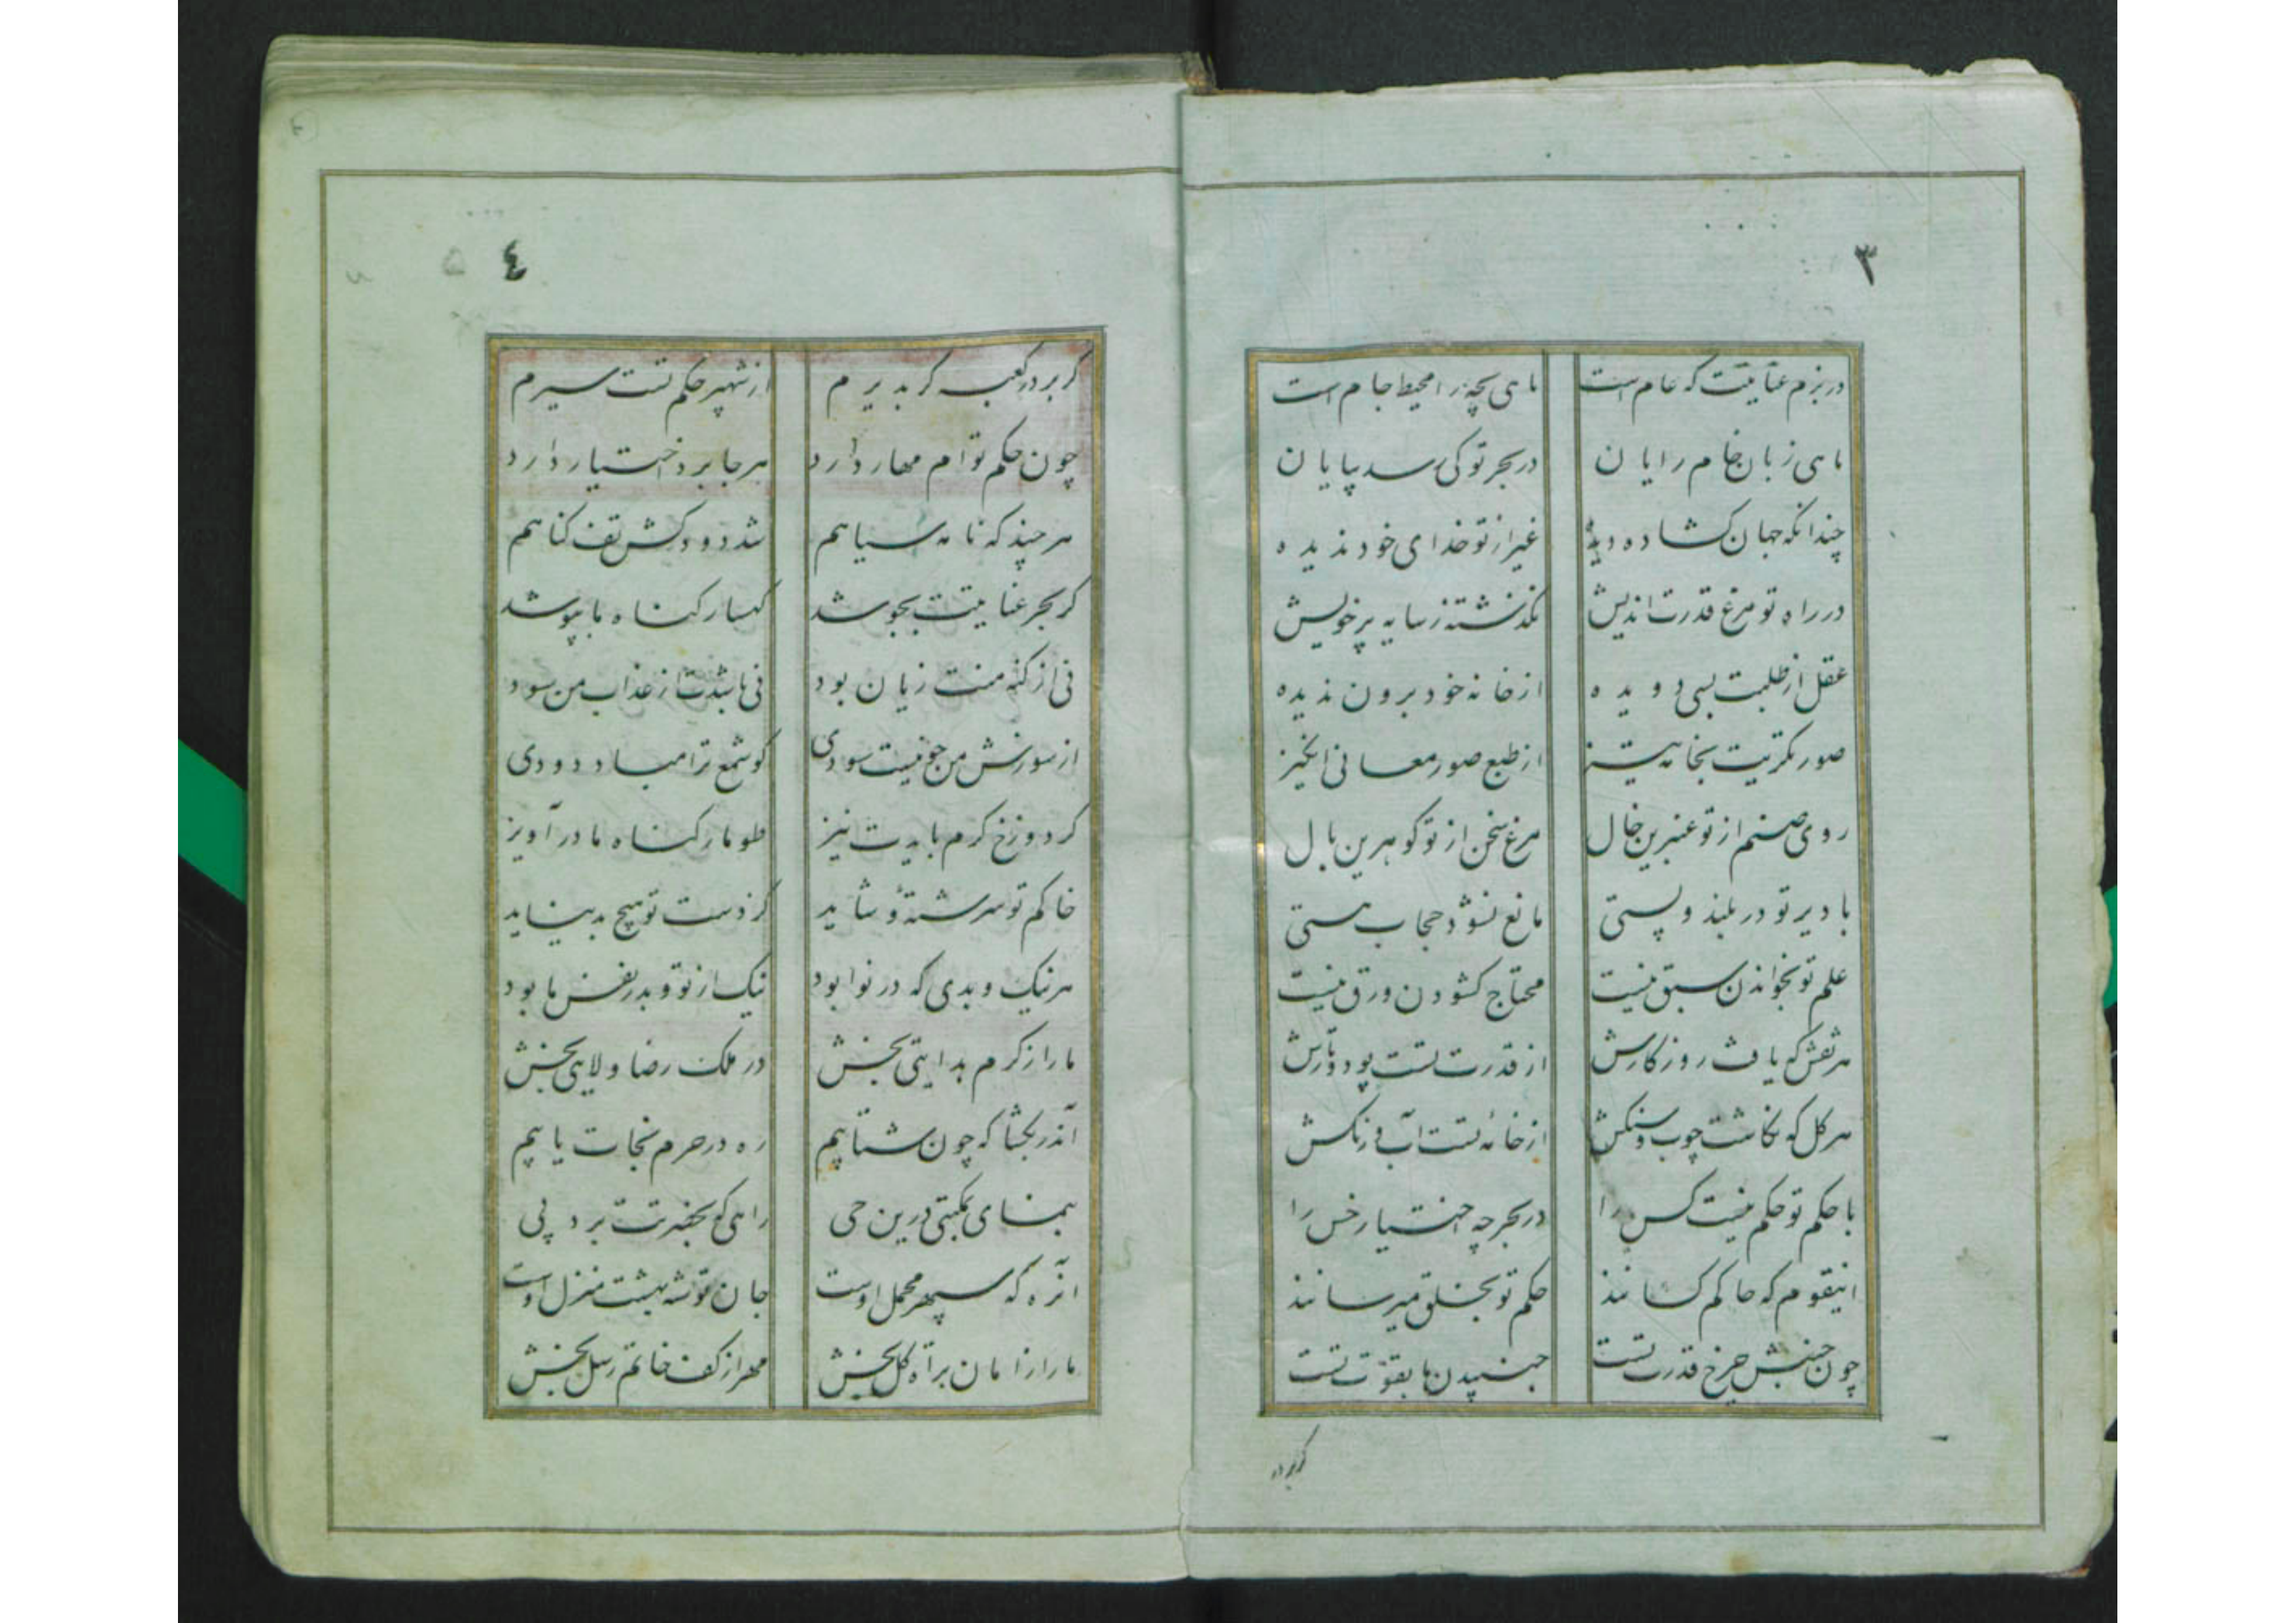 ۳
در بزم عنایتت که عام است ماهی بچه را محیط جام است
ماهی زبان خام رایان در بحر تو کی رسد بپایان
چندانکه جهان کشاده دیده غیر از تو خدای خود ندیده
در راه تو مرغ قدرت اندیش نگذشته ز سایه پر خویش
عقل از طلبت بسی دویده از خانه خود برون ندیده
صورتکریت بخامه تیز از طبع صور معانی انگیز
روی صنم از تو عنبرین خال مرغ سخن از تو گوهرین بال
با دیر تو در بلند و پستی مانع نشود حجاب هستی
علم تو بخواندن سبق نیست محتاج کشودن ورق نیست
هر نقش که یافت روزکارش از قدرت تست پود و تارش
هر کل که نکاشت چوب و سنکش از خانه تست آب و رنکش
با حکم تو حکم نیست کس را در بحر چه اختیار خس را
اینقوم که حاکم کسانند حکم تو بخلق میرسانند
چون جنبش چرخ قدرت تست جنبیدن ما بقوت تست
کر بر در
٤ ۵
کر بر در کعبه کر بدیرم از شهپر حکم تست سیرم
چون حکم توام مهار دارد هر جا برد اختیار دارد
هر چند که نامه سیاهم شد دودکش تف کناهم
کر بحر عنایتت بجوشد کهسار کناه ما بپوشد
نی از کنه منت زیان بود نی باشدت از عذاب من سود
از سوزش من چو نیست سودی کو شمع ترا مباد دودی
کر دوزخ کرم بایدت نیز طومار کناه ما در آویز
خاکم تو سرشتهٔ و شاید کز دست تو هیچ بد نیاید
هر نیک و بدی که در نوا بود نیک از تو و بد ز نفس ما بود
ما را ز کرم هدایتی بخش در ملک رضا ولایتی بخش
آندر بکشا که چون شتابیم ره در حرم نجات یابیم
بنمای بمکبتی درین حی راهی که بحضرتت برد پی
انره که سپهر محمل اوست جان توشه بهشت منزل اوست
ما را ز امان برات کل بخش مهر از کف خاتم رسل بخش